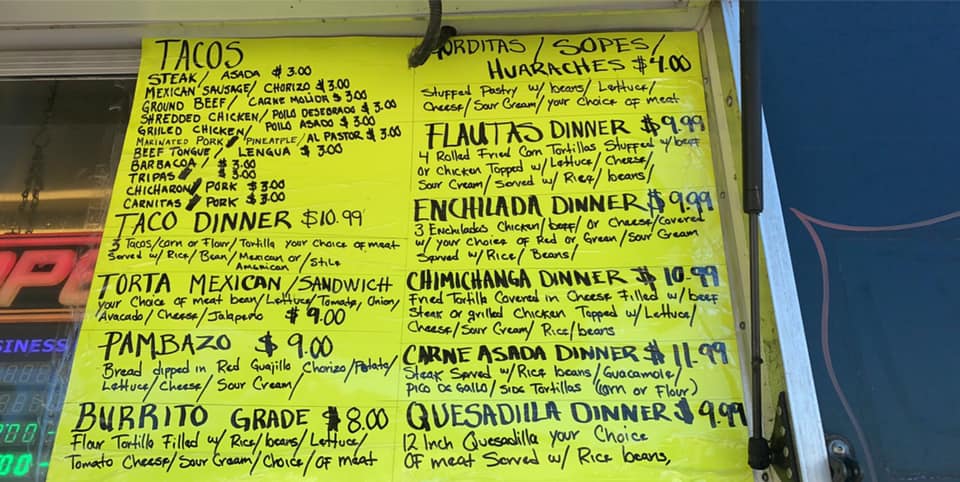 TACOS
STEAK/ ASADA $3.00
MEXICAN SAUSAGE/ CHORIZO $3.00
GROUND BEEF/ CARNE MOLIDA $3.00
SHREDDED CHICKEN/ POLLO DESEBRADO $3.00
GRILLED CHICKEN/ POLLO ASADO $3.00
MARINATED PORK/ PINEAPPLE/ AL PASTOR $3.00
BEEF TONGUE/ LENGUA $3.00
BARBACOA/ $3.00
TRIPAS $3.00
CHICHARON/ PORK $3.00
CARNITAS/ PORK $3.00
TACO DINNER $10.99
3 Tacos/corn or Flour/Tortilla your choice of meat
Served w/ Rice/Bean/Mexican or/
American/Stile
TORTA MEXICAN/SANDWICH
your Choice of meat bean/Lettuce/Tomato, Onion,
Avacado/Cheese/Jalapeño $9.00
PAMBAZO $9.00
Bread dipped in Red Guajillo Chorizo/Potato/
Lettuce/Cheese/Sour Cream/
BURRITO GRADE $8.00
Flour Tortilla Filled w/Rice/beans/Lettuce/
Tomato Cheese/Sour Cream/Choice/OF meat
GORDITAS/SOPES/
HUARACHES $4.00
Stuffed Pastry w/beans/Lettuce/
Cheese/Sour Cream/your choice of meat
FLAUTAS DINNER $9.99
4 Rolled Fried Corn Tortillas Stuffed w/beef
or Chicken Topped w/Lettuce/Cheese/
Sour Cream/Served w/Rice/beans/
ENCHILADA DINNER $9.99
3 Enchiladas Chicken/beef/or Cheese/covered
w/your Choice of Red or Green/Sour Cream
Served w/Rice/Beans/
CHIMICHANGA DINNER $10.99
Fried Tortilla Covered in Cheese Filled w/beef
Steak or grilled Chicken Topped w/Lettuce/
Cheese/Sour Cream/Rice/beans
CARNE ASADA DINNER $11.99
Steak Served w/Rice beans/Guacamole/
PICO DE GALLO/SIDE Tortillas (Corn or Flour)
QUESADILLA DINNER $9.99
12 Inch Quesadilla your Choice
OF meat Served w/Rice beans,
OP
SINESS